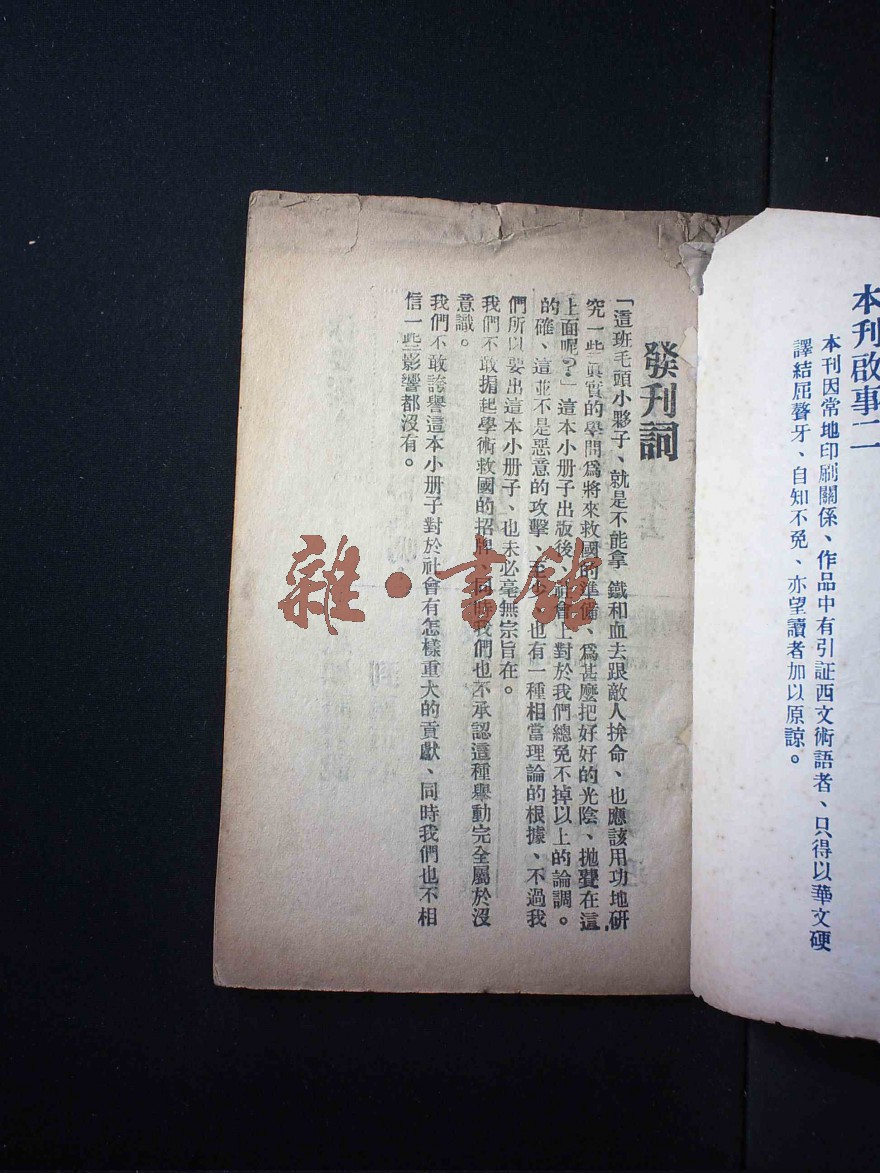 本刊啟事二
本刊因常地印刷關係、作品中有引証西文術語者、只得以華文硬
譯結屈聱牙、自知不免、亦望讀者加以原諒。
發刊詞
「這班毛頭小夥子、就是不能拿 鐵和血去跟敵人拚命、也應該用功地研
究一些眞實的學問爲將來救國的準備、爲甚麼把好好的光陰、拋費在這
上面呢?」這本小册子出版後、社會上對於我們總免不掉以上的論調。
的確、這並不是惡意的攻擊、至少也有一種相當理論的根據、不過我
們所以要出這本小册子、也未必毫無宗旨在。
我們不敢掮起學術救國的招牌、同時我們也不承認這種舉動完全屬於沒
意識。
我們不敢誇譽這本小册子對於社會有怎樣重大的貢獻、同時我們也不相
信一些影響都沒有。
雜·書館